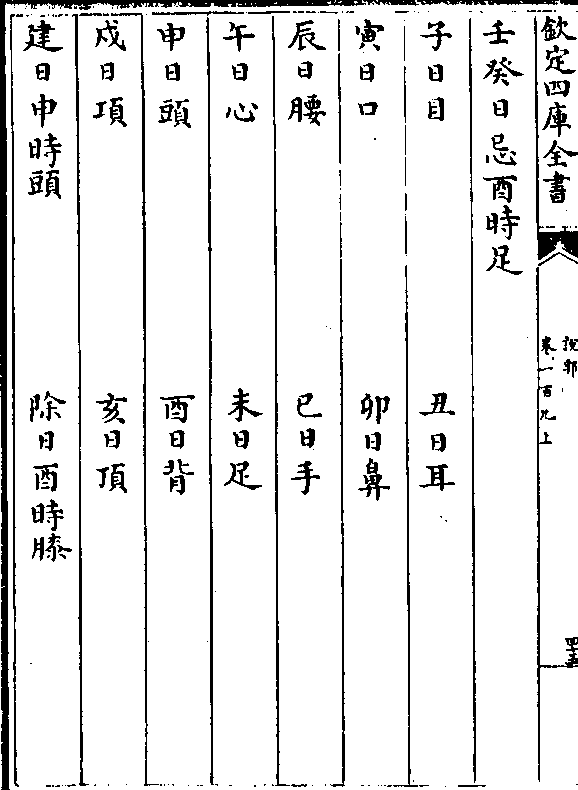 欽定四庫全書
說郛
卷一百九上
四十五
壬癸日忌酉時足
子日目 丑日耳
寅日口 卯日鼻
辰日腰 巳日手
午日心 未日足
申日頭 酉日背
戍日項 亥日頂
建日申時頭 除日酉時膝